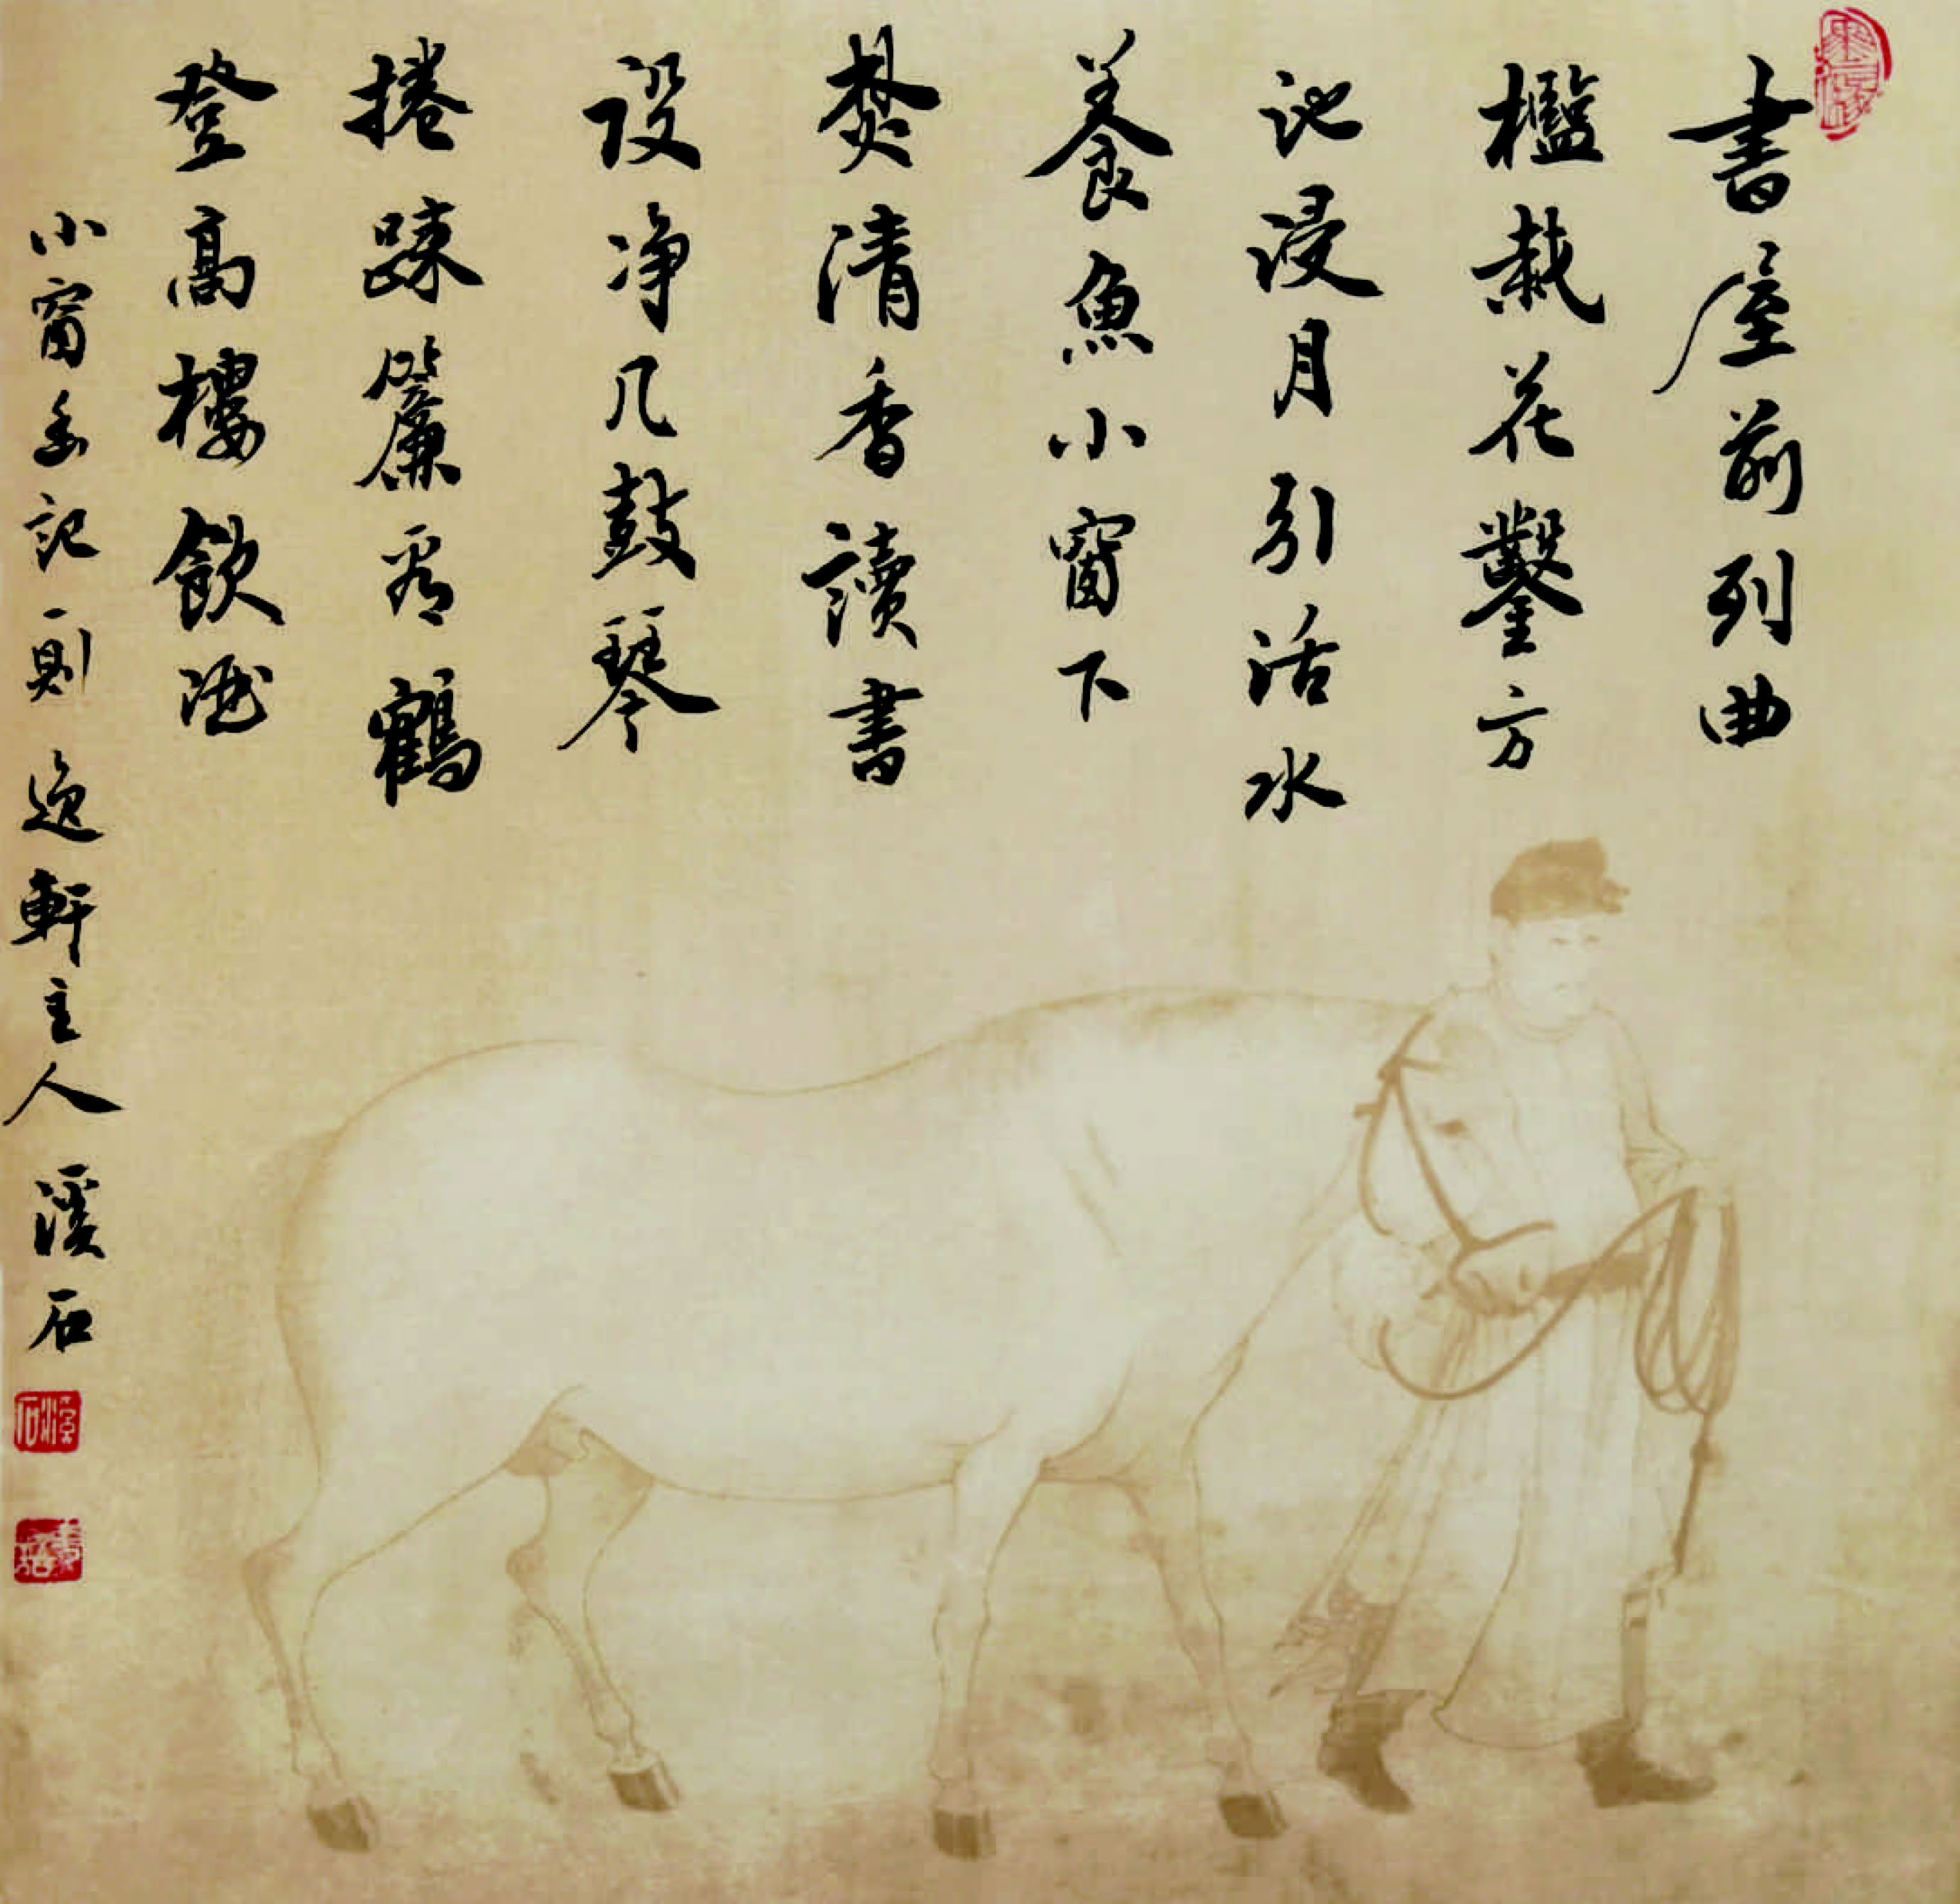 書屋前列曲
檻栽花鑿方
池浸月引活水
養魚小窗下
焚清香讀書
設净几鼓琴
捲踈簾看鶴
登高樓飲酒
小窗幽記一則 逸軒主人 溪石
溪石